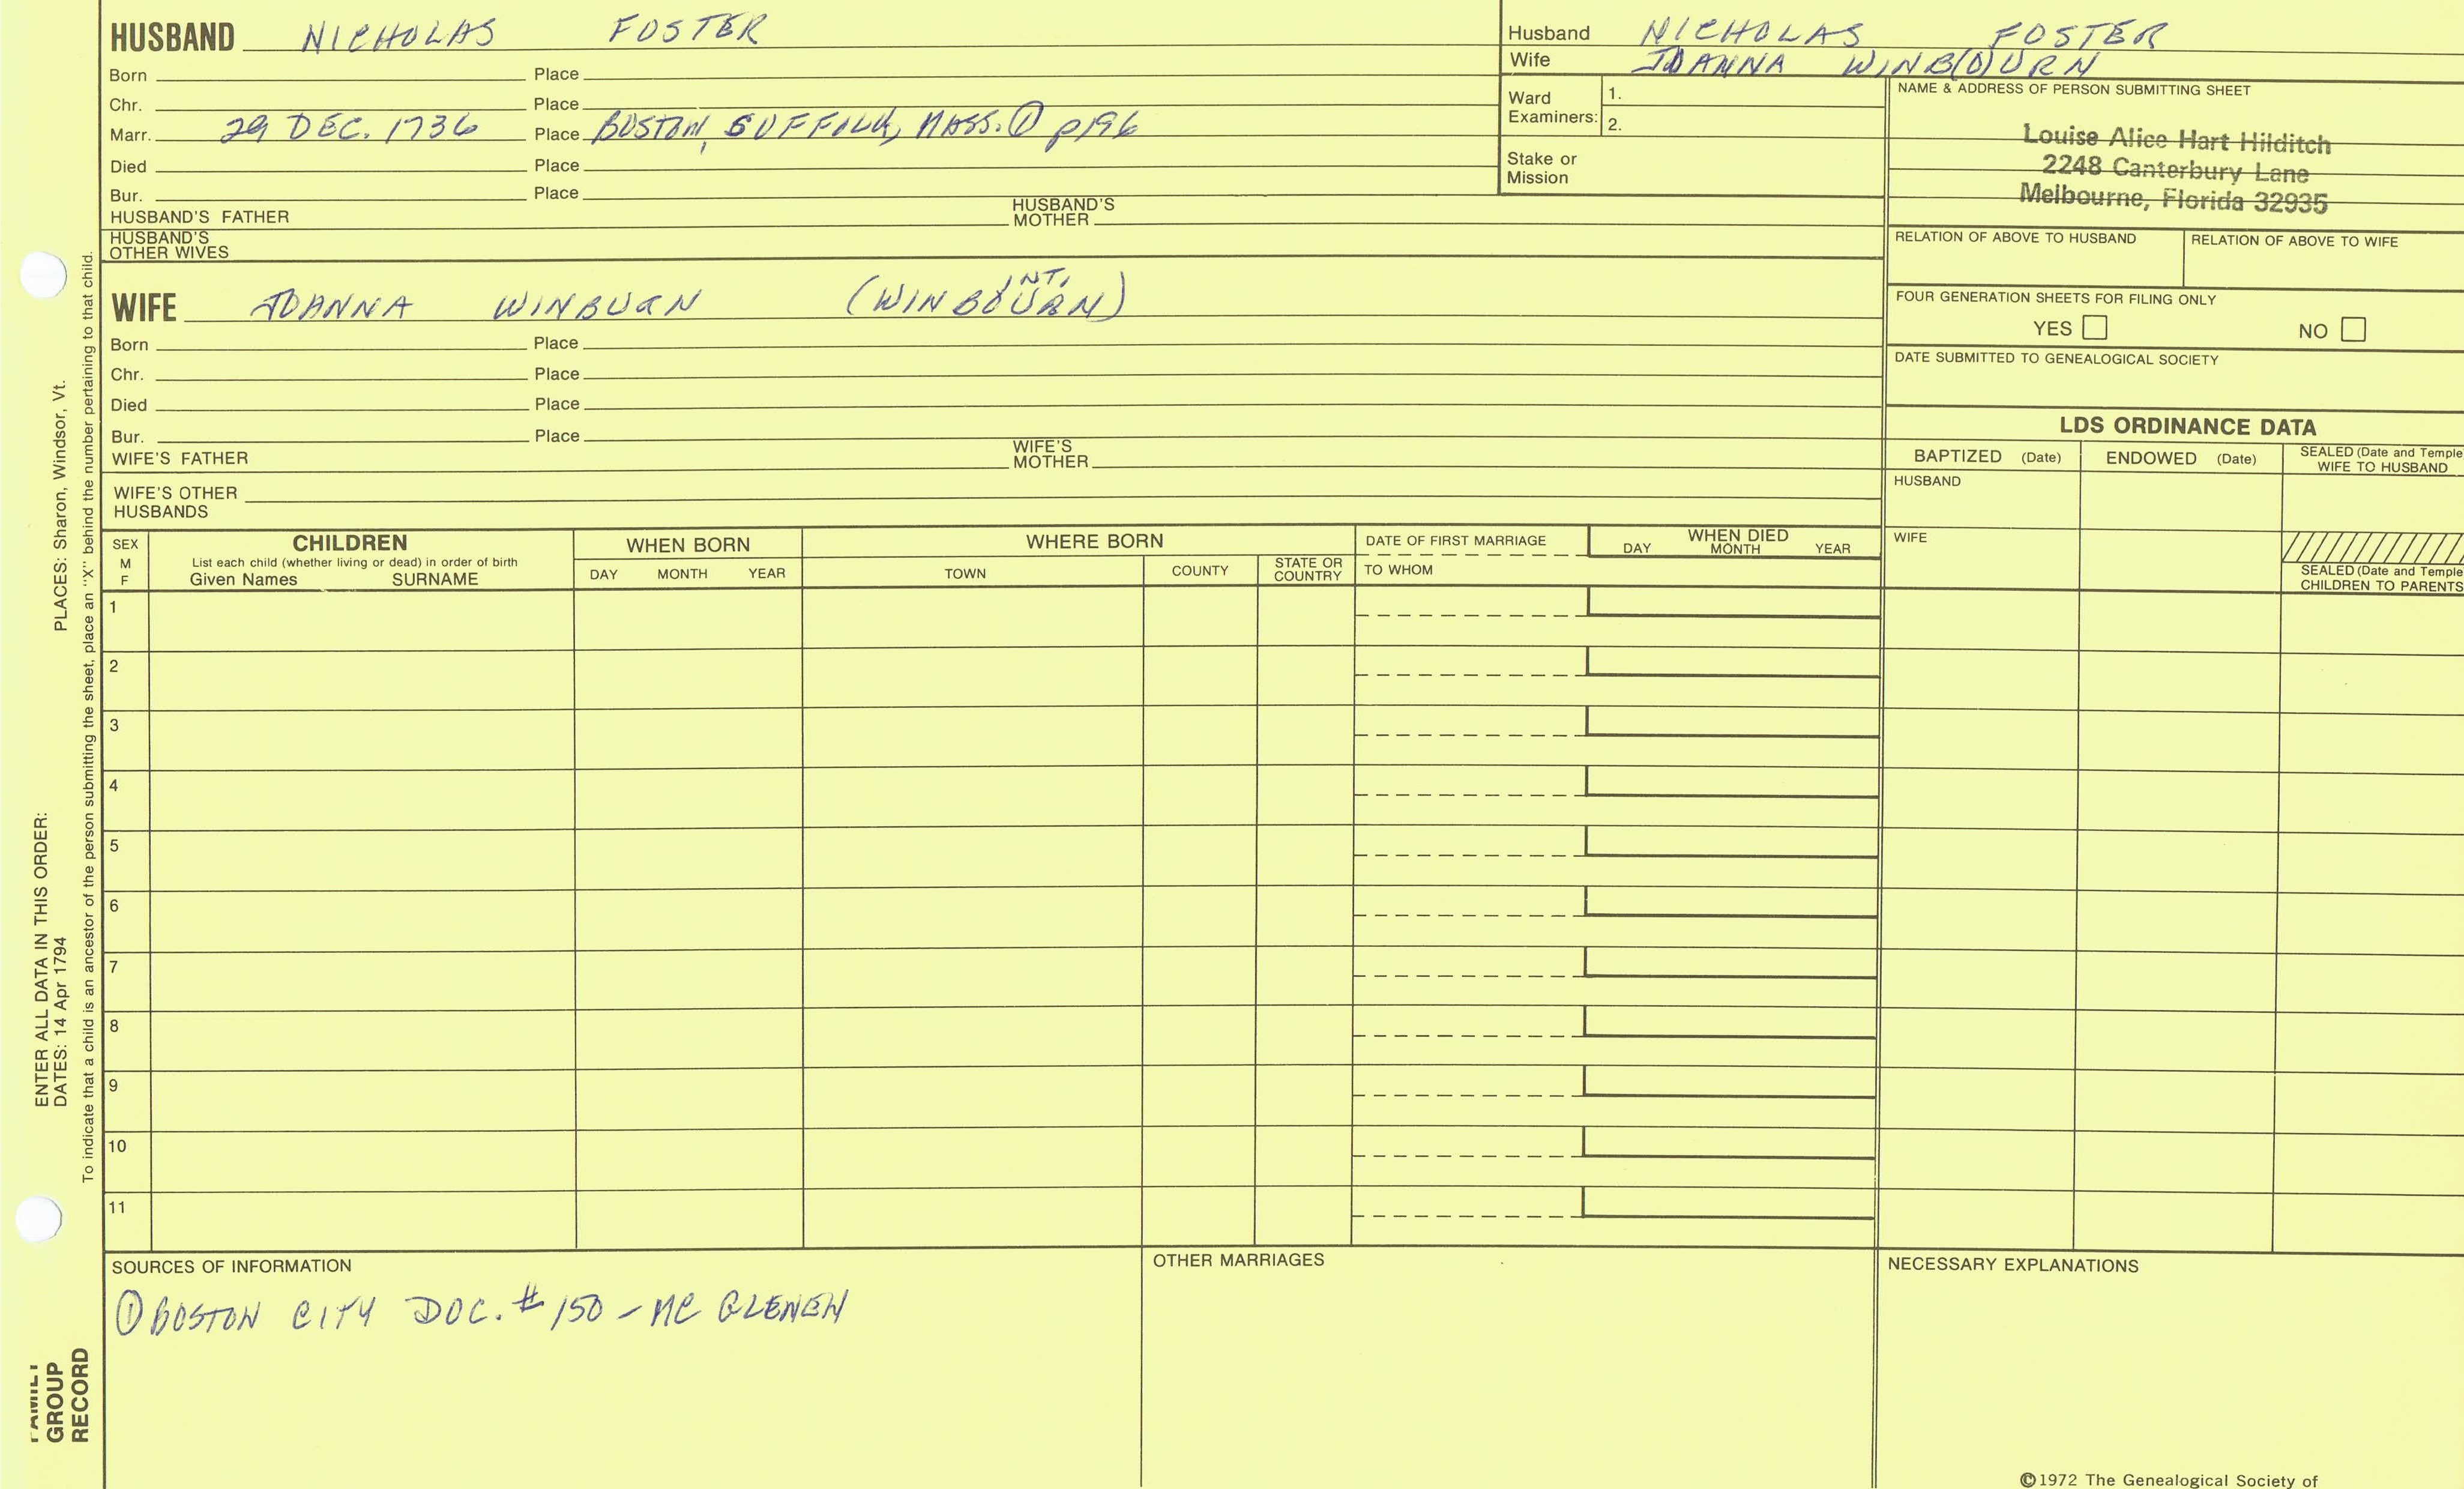 HUSBAND NICHOLAS FOSTER
Born Place
Chr. Place
Marr. 29 DEC. 1736 Place BOSTON, SUFFOLK, MASS. ① p196
Died Place
Bur. Place
HUSBAND'S FATHER HUSBAND'S MOTHER
HUSBAND'S OTHER WIVES
Husband NICHOLAS FOSTER
Wife JOANNA WINB(O)URN
Ward Examiners: 1.
2.
Stake or Mission
NAME & ADDRESS OF PERSON SUBMITTING SHEET
Louise Alice Hart Hilditch
2248 Canterbury Lane
Melbourne, Florida 32935
RELATION OF ABOVE TO HUSBAND RELATION OF ABOVE TO WIFE
FOUR GENERATION SHEETS FOR FILING ONLY
YES NO
DATE SUBMITTED TO GENEALOGICAL SOCIETY
WIFE JOANNA WINBURN (WINBOURN) INT.
Born Place
Chr. Place
Died Place
Bur. Place
WIFE'S FATHER WIFE'S MOTHER
WIFE'S OTHER HUSBANDS
LDS ORDINANCE DATA
BAPTIZED (Date) ENDOWED (Date) SEALED (Date and Temple
WIFE TO HUSBAND
HUSBAND
WIFE
SEALED (Date and Temple
CHILDREN TO PARENTS
SEX
M
F
CHILDREN
List each child (whether living or dead) in order of birth
Given Names SURNAME
WHEN BORN
DAY MONTH YEAR
WHERE BORN
TOWN COUNTY STATE OR COUNTRY
DATE OF FIRST MARRIAGE
TO WHOM
WHEN DIED
DAY MONTH YEAR
1
2
3
4
5
6
7
8
9
10
11
SOURCES OF INFORMATION
① BOSTON CITY DOC. # 150 - MC GLENEN
OTHER MARRIAGES
NECESSARY EXPLANATIONS
©1972 The Genealogical Society of
PLACES: Sharon, Windsor, Vt.
ENTER ALL DATA IN THIS ORDER:
DATES: 14 Apr 1794
To indicate that a child is an ancestor of the person submitting the sheet, place an "X" behind the number pertaining to that child.
FAMILY
GROUP
RECORD